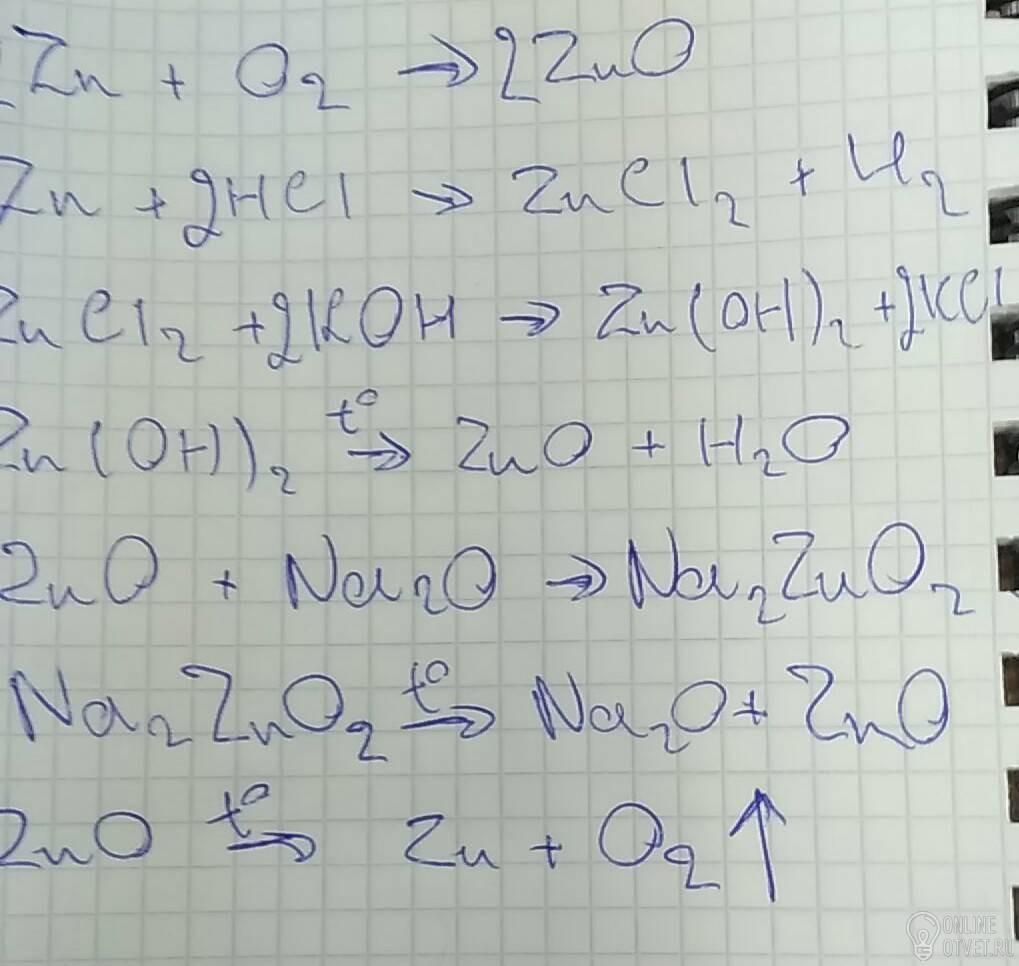 2Zn + O₂ → 2ZnO
Zn + 2HCl → ZnCl₂ + H₂
ZnCl₂ + 2KOH → Zn(OH)₂ + 2KCl
Zn(OH)₂ t° → ZnO + H₂O
ZnO + Na₂O → Na₂ZnO₂
Na₂ZnO₂ t° → Na₂O + ZnO
ZnO t° → Zn + O₂ ↑
ONLINE
OTVET.RU